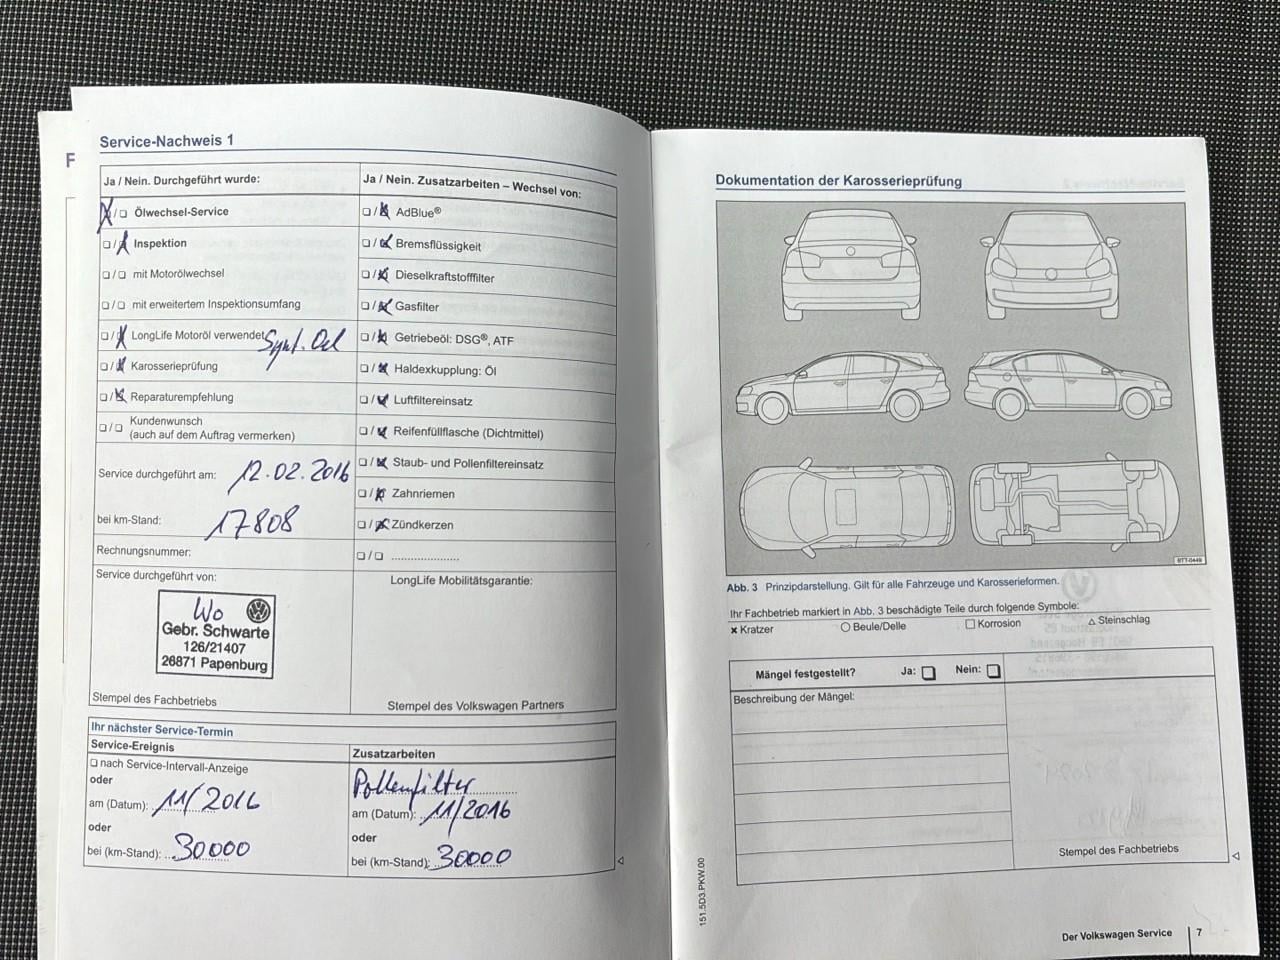 F
Service-Nachweis 1
Ja / Nein. Durchgeführt wurde:
Ölwechsel-Service
Inspektion
mit Motorölwechsel
mit erweitertem Inspektionsumfang
LongLife Motoröl verwendet Synt. Oel
Karosserieprüfung
Reparaturempfehlung
Kundenwunsch
(auch auf dem Auftrag vermerken)
Service durchgeführt am: 12.02.2016
bei km-Stand: 17808
Rechnungsnummer:
Service durchgeführt von:
Wo
Gebr. Schwarte
126/21407
26871 Papenburg
Stempel des Fachbetriebs
Ja / Nein. Zusatzarbeiten – Wechsel von:
AdBlue®
Bremsflüssigkeit
Dieselkraftstofffilter
Gasfilter
Getriebeöl: DSG®, ATF
Haldexkupplung: Öl
Luftfiltereinsatz
Reifenfüllflasche (Dichtmittel)
Staub- und Pollenfiltereinsatz
Zahnriemen
Zündkerzen
LongLife Mobilitätsgarantie:
Stempel des Volkswagen Partners
Ihr nächster Service-Termin
Service-Ereignis
nach Service-Intervall-Anzeige
oder
am (Datum): 11/2016
oder
bei (km-Stand): 30000
Zusatzarbeiten
Pollenfilter
am (Datum): 11/2016
oder
bei (km-Stand): 30000
Dokumentation der Karosserieprüfung
BTT-0449
Abb. 3 Prinzipdarstellung. Gilt für alle Fahrzeuge und Karosserieformen.
Ihr Fachbetrieb markiert in Abb. 3 beschädigte Teile durch folgende Symbole:
Kratzer Beule/Delle Korrosion Steinschlag
Mängel festgestellt? Ja: Nein:
Beschreibung der Mängel:
Stempel des Fachbetriebs
151.5D3.PKW.00
Der Volkswagen Service 7